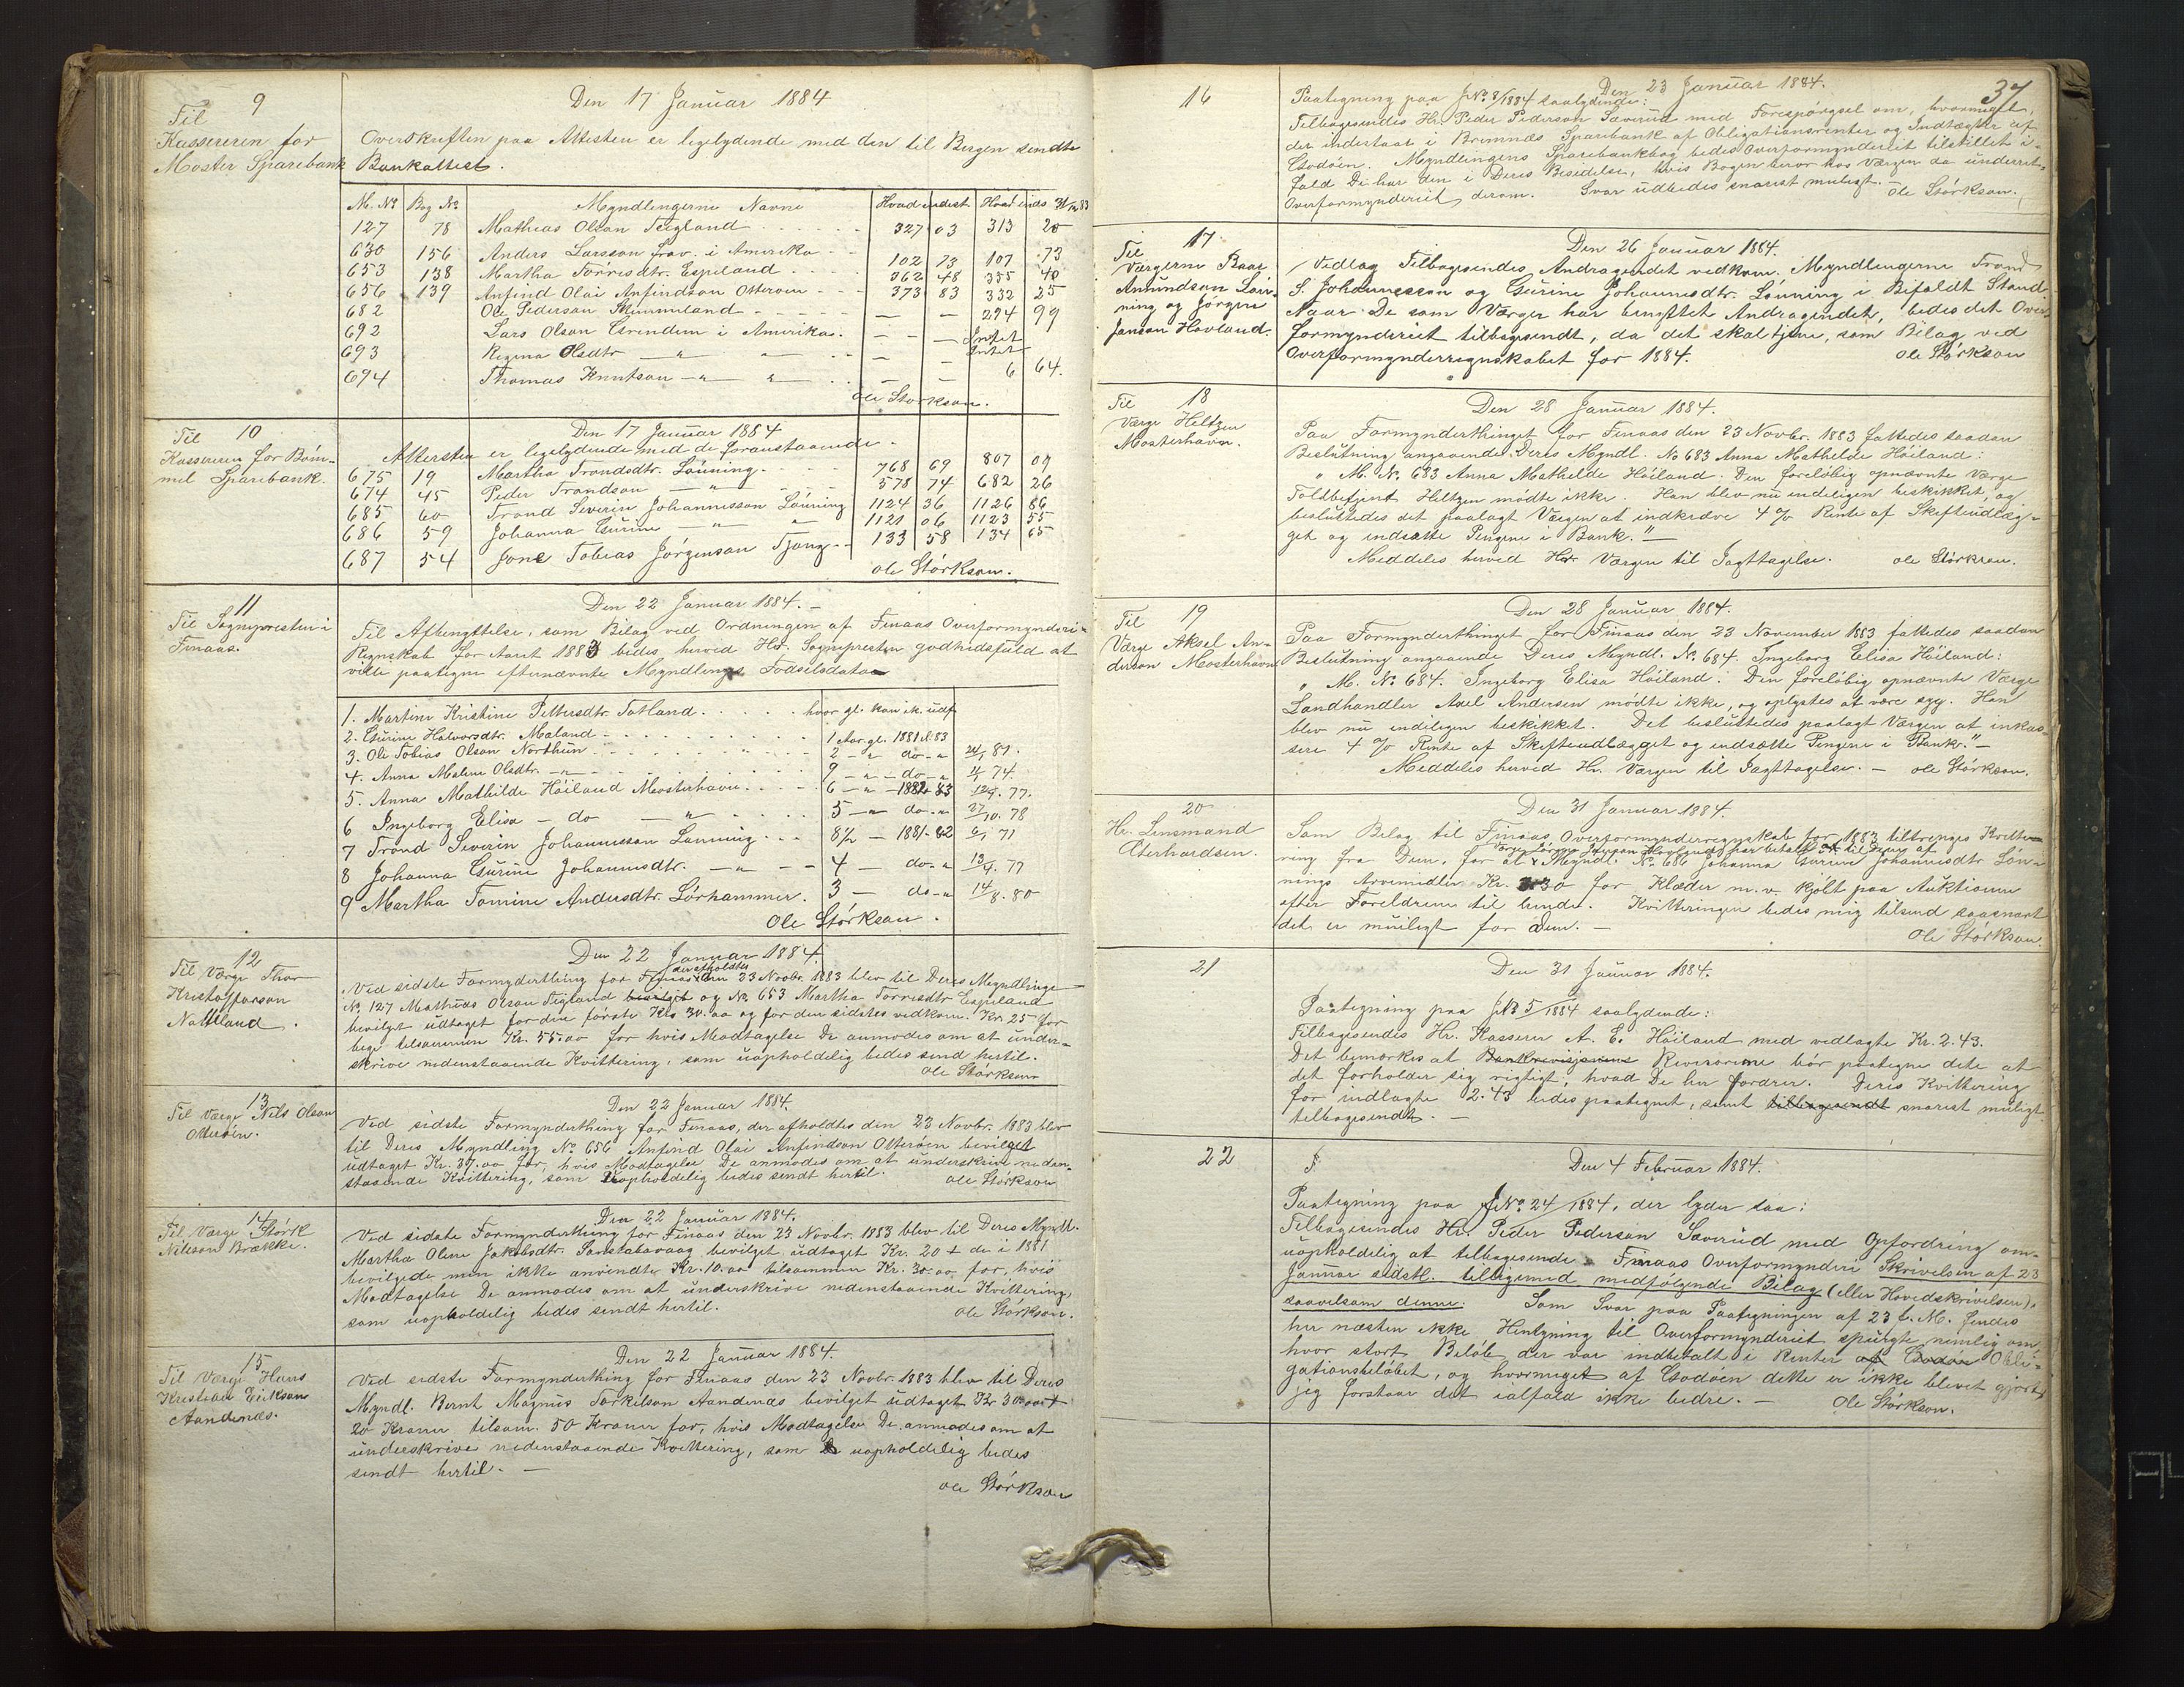 9
Til
Kassereren for
Moster Sparebank
Den 17 Januar 1884
Overskriften paa Attesten er ligelydende med den til Bergen sendte
Bankattest.
M. No Bog No Myndlingerne Navne Hvad indest Hvad inds 31/12 83
127 78 Mathias Olson Teigland 327 03 313 20
630 156 Anders Larsson frav. i Amerika 102 73 107 73
653 138 Martha Torrisdtr. Espeland 362 48 355 40
656 139 Anfind Olai Anfindson Otterøen 373 83 332 25
682 Ole Pederson Skimmeland — — 294 99
692 Lars Olson Grindem i Amerika — — Intet
693 Regina Olsdtr — " " — — Intet
694 Thomas Knutson — " " — — 6 64.
Ole Størkson.
10
Til
Kassereren for Bøm-
mel Sparebank.
Den 17 Januar 1884
Attersten er ligelydende med de foranstaaende.
675 19 Martha Trondsdtr. Lønning 768 69 807 09
674 45 Peder Trondson — " 578 74 682 26
685 60 Trond Severin Johannesson Lønning 1124 36 1126 86
686 59 Johanna Gurine — " " 1121 06 1123 55
687 54 Jone Tobias Jørgenson Tjong 133 58 134 65
Ole Størkson.
11
Til Sognepresten i
Finaas.
Den 22 Januar 1884. —
Til Afbenyttelse, som Bilag ved Ordningen af Finaas Overformynderi-
Regnskab for Aaret 1883 bedes herved Hr. Sognepresten godhedsfuld at
ville paategne efternævnte Myndlings Fødselsdata
1. Martine Kristine Pettersdtr. Totland hvor gl. kan ik. udf.
2. Gurine Halvorsdtr. Maland 1 Aar gl. 1881 & 83
3. Ole Tobias Olson Northun 2 — " do — " 24/1 81.
4. Anna Malene Olsdtr. — " 9 — " — do — " 4/1 74.
5. Anna Mathilde Høiland Mosterhavn 6 — " — 1882 & 83 12/9. 77.
6 Ingeborg Elisa — do — " 5 — " do — " 27/10. 78
7 Trond Severin Johannesson Lønning 8½ — 1881-82 6/1 71
8 Johanna Gurine Johannesdtr. — " 4 — do — " 13/4. 77
9 Martha Tomine Andersdtr. Lørhammer. 3 — do — " 14/8. 80
Ole Størkson.
12
Til Værge Thor
Kristofferson
Nattland.
Den 22 Januar 1884.
der afholdtes
Ved sidste Formynderthing for Finaas den 23 Novbr. 1883 blev til Deres Myndlinge
No. 127 Mathias Olson Teigland bevilget og No. 653 Martha Torrisdtr Espeland
bevilget udtaget for den første Kr. 30.00 og for den sidstes vedkom. Kr. 25 for
bege tilsammen Kr. 55.00 for hvis Modtagelse De anmodes om at under-
skrive nedenstaaende Kvittering, som uopholdelig bedes send hertil.
Ole Størkson
13
Til Værge Nils Olson
Otterøen.
Den 22 Januar 1884.
Ved sidste Formynderthing for Finaas, der afholdtes den 23 Novbr. 1883 blev
til Deres Myndling No. 656 Anfind Olai Anfindson Otterøen bevilget
udtaget Kr. 37.00 for, hvis Modtagelse De anmodes om at underskrive neden-
staaende Kvittering, som uopholdelig bedes sendt hertil.
Ole Størkson
14
Til Værge Størk
Nilsson Brække.
Den 22 Januar 1884.
Ved sidste Formynderthing for Finaas den 23 Novbr. 1883 blev til Deres Myndl.
Martha Olene Jakobsdtr. bevilget udtaget Kr. 20 + de i 1881
bevilgede men ikke anvendte Kr. 10.00 tilsammen Kr. 30.00 for, hvis
Modtagelse De anmodes om at underskrive nedenstaaende Kvittering,
som uopholdelig bedes sendt hertil.
Ole Størkson.
15
Til Værge Hans
Kristian Eirikson
Aandenæs.
Den 22 Januar 1884.
Ved sidste Formynderthing for Finaas den 23 Novbr. 1883 blev til Deres
Myndl. Bernt Magnus Torkelson Aandenæs bevilget udtaget Kr 30.00 +
20 Kroner tilsam. 50 Kroner for, hvis Modtagelse De anmodes om at
underskrive nedenstaaende Kvittering, som uopholdelig bedes
sendt hertil. —
Ole Størkson
37
16
Den 23 Januar 1884.
Paategning paa J No. 8/1884 saalydende:
Tilbagesendes Hr. Peder Pederson Sæverud med Forespørgsel om, hvormeget
der indestaar i Bremnæs Sparebank af Obligationsrenter og Indtægter af
Godøen. Myndlingens Sparebankbog bedes Overformynderiet tilstillet i-
fald De har den i Deres Besidelse, hvis Bogen beror hos Værgen da underret-
Overformynderiet derom. Svar udbedes snarest muligt. Ole Størkson.
17
Til
Værgerne Baar
Amundson Løn-
ning og Jørgen
Janson Hovland.
Den 26 Januar 1884.
Vedlag Tilbagesendes Andragendet vedkom. Myndlingerne Trond
S. Johannesson og Gurine Johannesdtr. Lønning i Bifaldt Stand
Naar De som Værger har benyttet Andragendet, bedes det Over-
formynderiet tilbagesendt, da det skal tjene, som Bilag ved
Overformynderregnskabet for 1884.
Ole Størkson
18
Til
Værge Hiltzen
Mosterhavn.
Den 28 Januar 1884.
Paa Formynderthinget for Finaas den 23 Novbr. 1883 fattedes saadan
Beslutning angaaende Deres Myndl. No 683 Anna Mathilde Høiland:
" M. No. 683 Anna Mathilde Høiland: Den foreløbig opnævnte Værge
Toldbetjent Hiltzen mødte ikke. Han blev nu endeligen beskikket, og
besluttedes det paalagt Værgen at indkræve 4 % Rente af Skifteudlæg-
get og indsætte Pengene i Bank." —
Meddeles herved Hr. Værgen til Iagttagelse. Ole Størkson.
19
Til
Værge Aksel An-
derson Mosterhavn
Den 28 Januar 1884.
Paa Formynderthinget for Finaas den 23 November 1883 fattedes saadan
Beslutning angaaende Deres Myndl. No. 684. Ingeborg Elisa Høiland:
" M. No. 684. Ingeborg Elisa Høiland: Den foreløbig opnævnte Værge
Landhandler Axel Andersen mødte ikke, og oplystes at være syg. Han
blev nu endeligen beskikket. Det besluttedes paalagt Værgen at inkas-
sere 4 % Rente af Skifteudlægget og indsætte Pengene i Bank." —
Meddeles herved Hr. Værgen til Iagttagelse. — Ole Størkson.
20
Hr. Lensmand
Gerhardsen.
Den 31 Januar 1884.
Som Bilag til Finaas Overformynderregnskab for 1883 tiltrenges Kvitte-
Værge Jørgen Janson Hovland har betalt til Dem af
ring fra Dem, for at Myndl. No. 686 Johanna Gurine Johannesdtr Løn-
nings Arvemidler Kr. 30 for Klæder m.v. kjøbt paa Auktionen
efter Foreldrene til hende. Kvitteringen bedes mig tilsend saasnart
det er muligt for Dem. —
Ole Størkson.
21
Den 31 Januar 1884.
Paategning paa J No 5/1884 saalydende:
Tilbagesendes Hr. Kasserer A. E. Høiland med vedlagte Kr. 2.43.
Det bemærkes at Bankrevisjonens Revisorerne bør paategne dete at
det forholder sig rigtigt, hvad De her fordrer. Deres Kvittering
for indlagte 2.43 bedes paategnet, samt tilbagesendt snarest muligt
tilbagesendt. —
22
Den 4 Februar 1884.
Paategning paa J No. 24/1884, der lyder saa:
Tilbagesendes Hr. Peder Pederson Sæverud med Opfordring om
uopholdelig at tilbagesende Finaas Overformynderi Skrivelsen af 23
Januar sidstl. tilligemed medfølgende Bilag (eller Hovedskrivelsen),
saavelsom denne. Som Svar paa Paategningen af 23 f. M. findes
her næsten ikke Hentyning til Overformynderiet spurgte nemlig om
hvor stort Beløb der var indbetalt i Renter af Godøen Obli-
gationsbeløbet, og hvormeget af Godøen dette er ikke blevet gjort,
jeg forstaar det ialfald ikke bedre. — Ole Størkson.